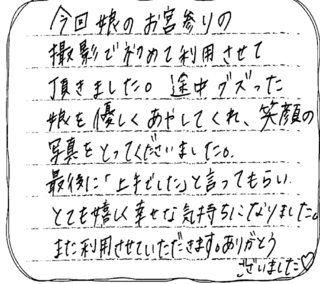 今回娘のお宮参りの
撮影で初めて利用させて
頂きました。途中グズった
娘を優しくあやしてくれ、笑顔の
写真をとってくださいました。
最後に「上手でした」と言ってもらい
とても嬉しく幸せな気持ちになりました。
また利用させていただきます。ありがとう
ございました♡